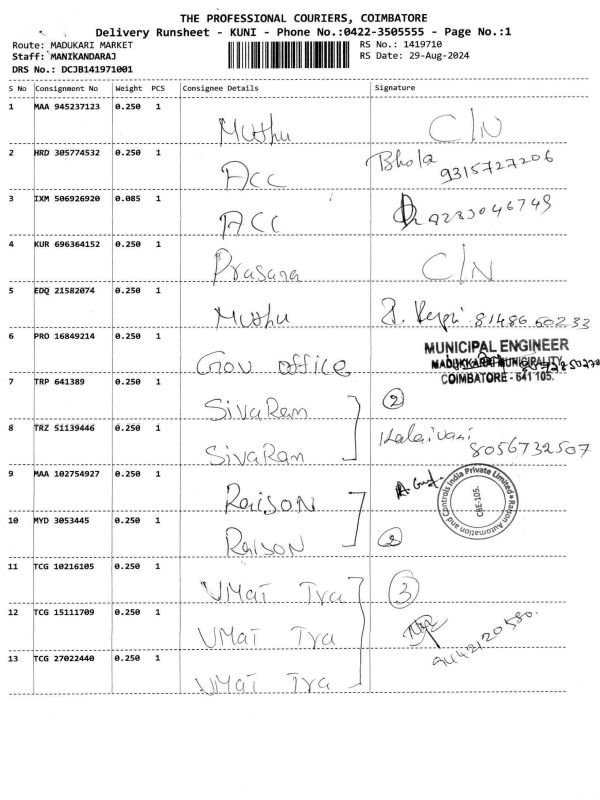 THE PROFESSIONAL COURIERS, COIMBATORE
Delivery Runsheet - KUNI - Phone No.:0422-3505555 - Page No.:1
Route: MADUKARI MARKET RS No.: 1419710
Staff: MANIKANDARAJ RS Date: 29-Aug-2024
DRS No.: DCJB141971001
S No Consignment No Weight PCS Consignee Details Signature
1 MAA 945237123 0.250 1 Muthu C/N
2 HRD 305774532 0.250 1 Acc Bhola 9315727206
3 IXM 506926920 0.085 1 ACC 9283046749
4 KUR 696364152 0.250 1 Prasana C/N
5 EDQ 21582074 0.250 1 Muthu 81486 60233
6 PRO 16849214 0.250 1 Gov office
MUNICIPAL ENGINEER
MADUKKARAI MUNICIPALITY
COIMBATORE - 641 105.
7 TRP 641389 0.250 1 SivaRam 2
8 TRZ 51139446 0.250 1 SivaRam Kalaivani 8056732507
9 MAA 102754927 0.250 1 Raison
Raison Automation and Controls India Private Limited
CBE-105.
10 MYD 3053445 0.250 1 Raison 2
11 TCG 10216105 0.250 1 UMai Tra 3
12 TCG 15111709 0.250 1 UMai Tra 9442120580.
13 TCG 27022440 0.250 1 UMai Tra